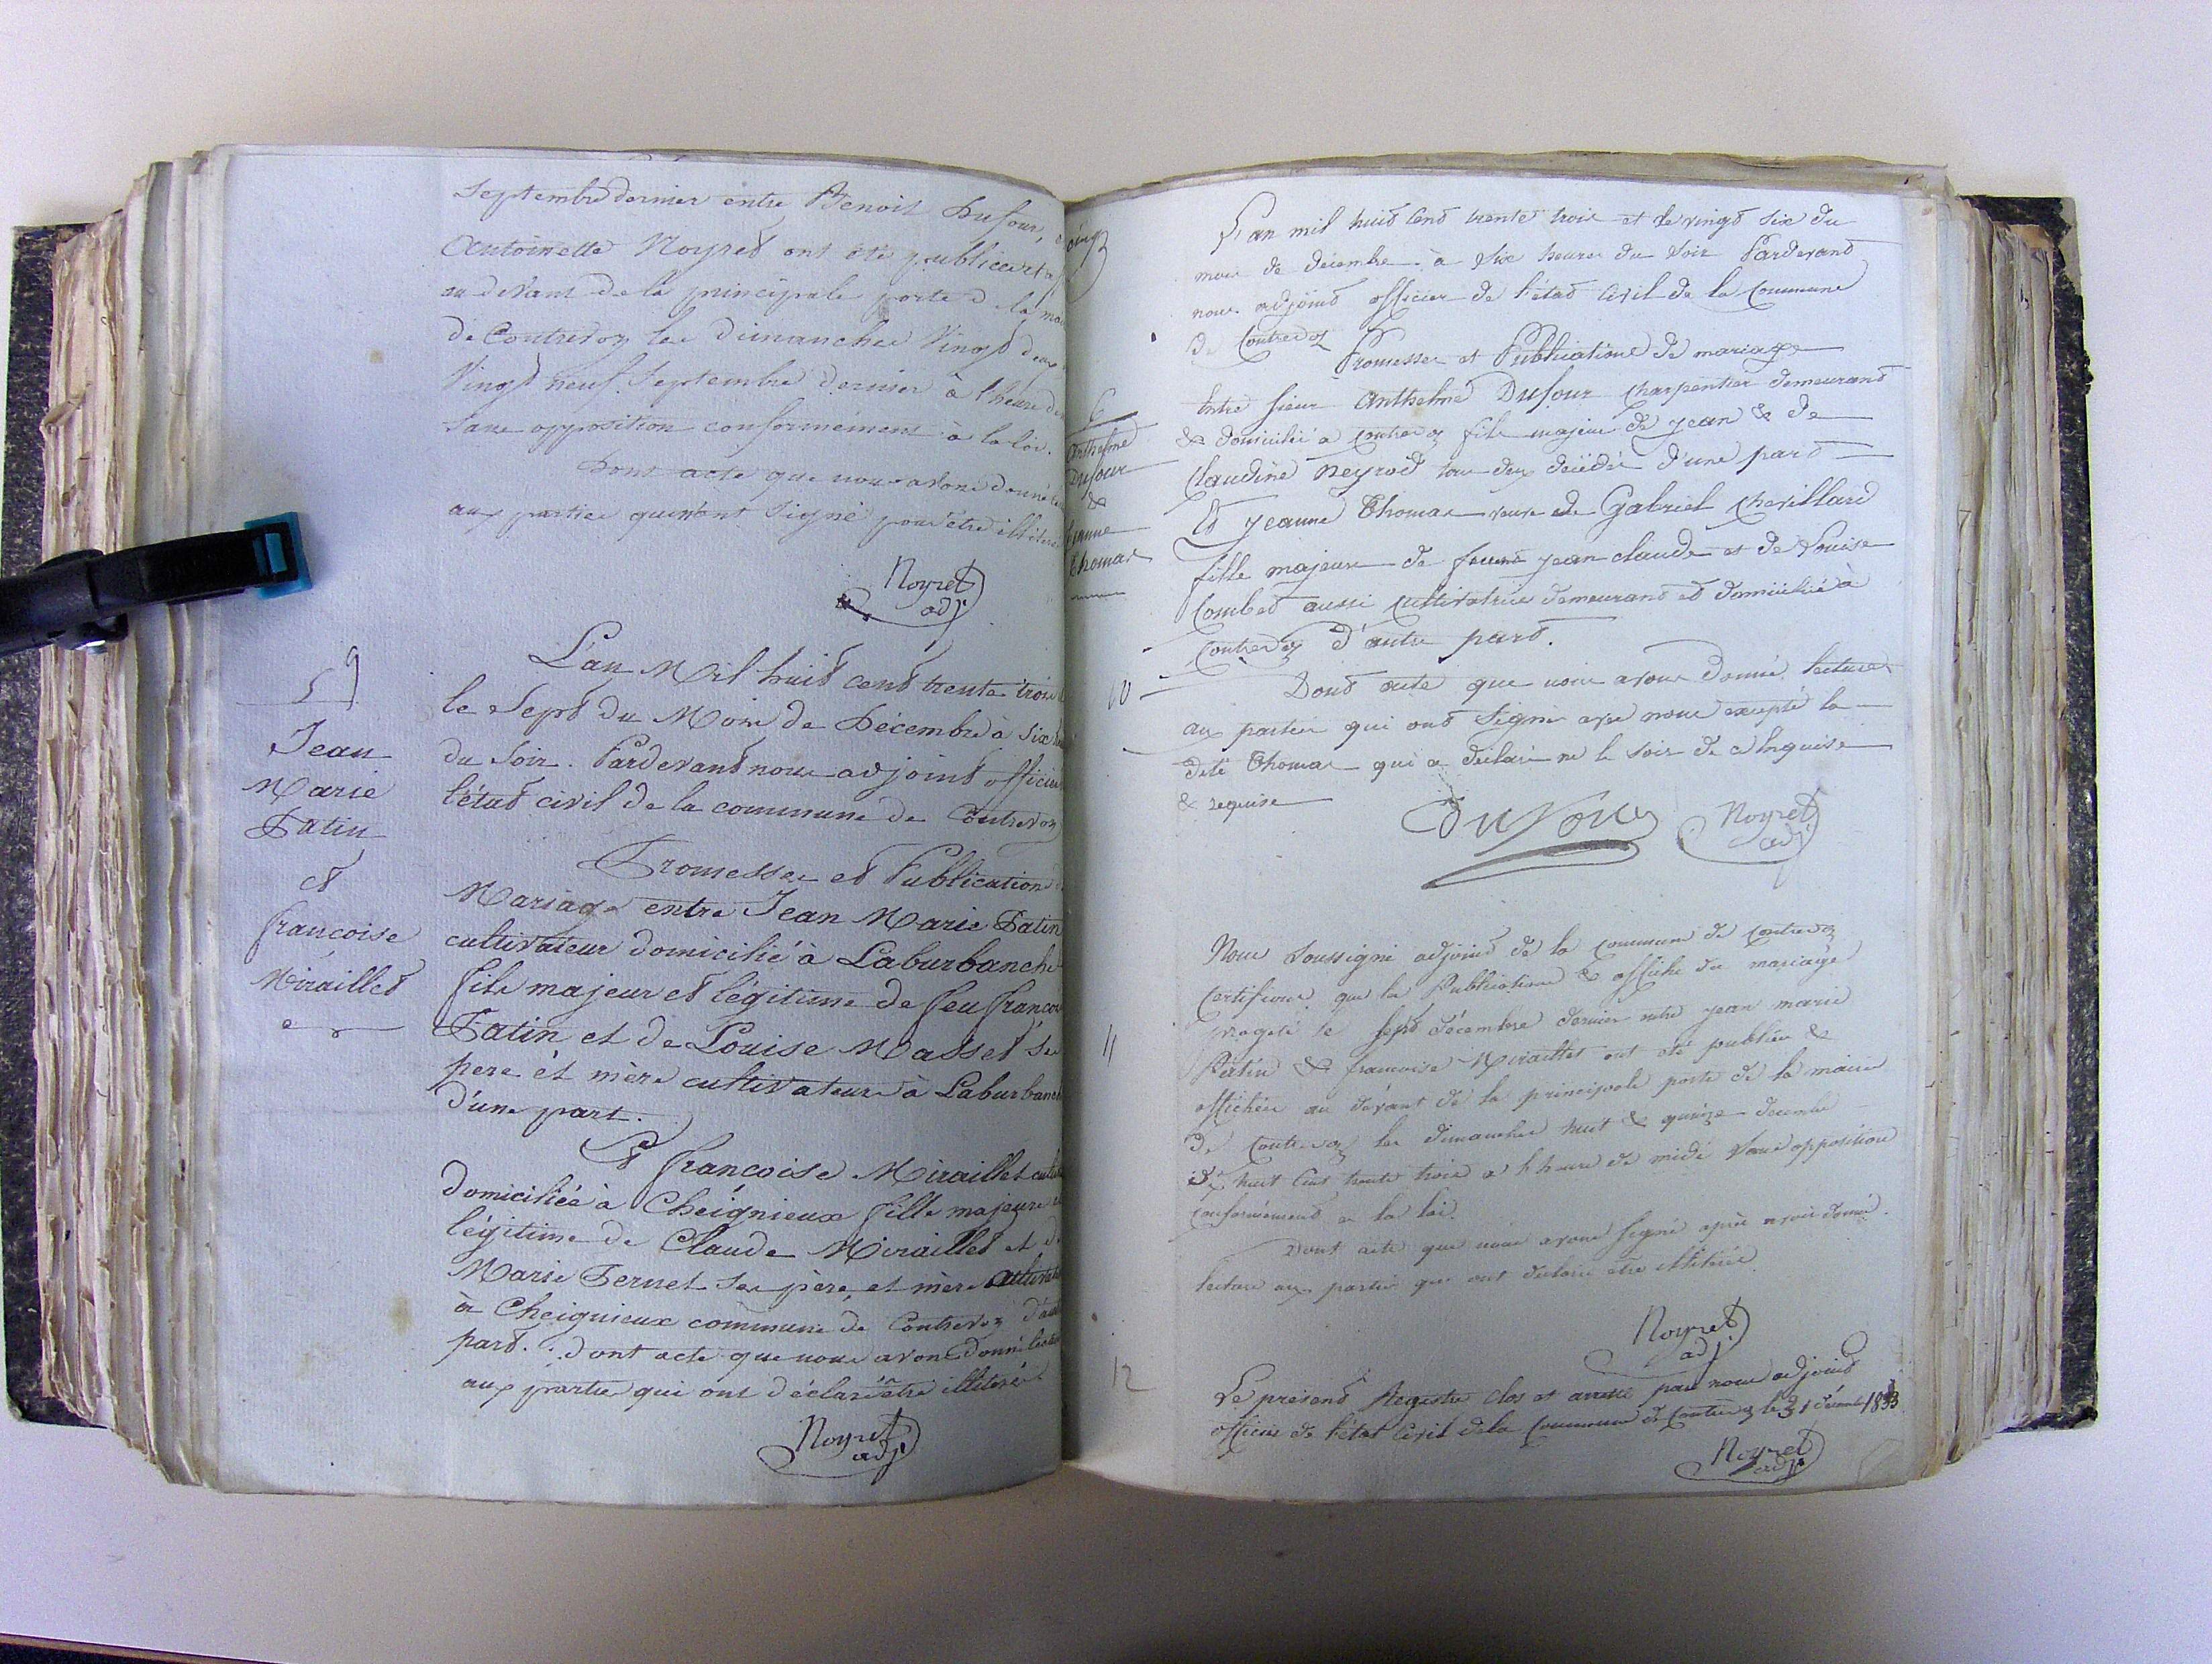 Septembre dernier entre Benoit Dufour, e
Antoinette Noyret ont été publiée et a
au devant de la principale porte d la mai
de Contrevoz les dimanches Vingt deux
Vingt neuf Septembre dernier à l'heure de
Sans opposition conformement à la loi.
Dont acte que nous avons donné
aux parties qui n'ont Signé pour être illitere
Noyret
adj.
5
Jean
Marie
Patin
et
françoise
Miraillet
L'an Mil huit cent trente trois
le Sept du Mois de Décembre à Six
du Soir. Pardevant nous adjoint officier
l'état civil de la commune de Contrevoz
Promesses et Publication
Mariage entre Jean Marie Patin
cultivateur domicilié à Laburbanche
fils majeur et légitime de feu françois
Patin et de Louise Masset Se
pere et mère cultivateurs à Laburbanch
d'une part.
Et françoise Miraillet cult
domiciliée à Cheignieux fille majeure
légitime de Claude Miraillet et d
Marie Pernet Ses père et mère cultivat
à Cheignieux commune de Contrevoz d'aut
part. Dont acte que nous avons donné lect
aux parties qui ont déclaré être illitéré
Noyret
adjt
cinq
L'an mil huit cent trente trois et le vingt six du
mois de décembre à six heures du soir Pardevant
nous adjoint officier de l'état civil de la Commune
de Contrevoz
Promesses et Publications de mariage
6
Anthelme
Dufour
&
Jeanne
Thomas
Entre sieur Anthelme Dufour charpentier demeurant
& domicilié à Contrevoz fils majeur de jean & de
Claudine Neyrod tous deux décédés d'une part
Et jeanne Thomas veuve de Gabriel Chevillard
fille majeure de feu jean claude et de Louise
Combet aussi cultivatrice demeurant et domiciliée à
Contrevoz d'autre part.
10
Dont acte que nous avons donné lecture
aux parties qui ont Signé avec nous excepté la
dite Thomas qui a déclaré ne le savoir de enquise
& requise
Dufour
Noyret
adj
Nous Soussigné adjoint de la commune de Contrevoz
Certifions que la Publications & affiche du mariage
progeté le sept décembre dernier entre jean marie
11
Patin & francoise Miraillet ont été publiée &
affichée au devant de la principale porte de la mairie
de Contrevoz les dimanches huit & quinze decembre
dix huit cent trente trois a l heure de midi Sans opposition
conformément a la loi.
Dont acte que nous avons signé après avoir donné
lecture aux parties qui ont déclaré être illitérée.
Noyret
adj.
12
Le présent Registre clos et arrêté par nous adjoint
officier de l'état civil de la Commune de Contrevoz le 31 décemb 1833
Noyret
adjt